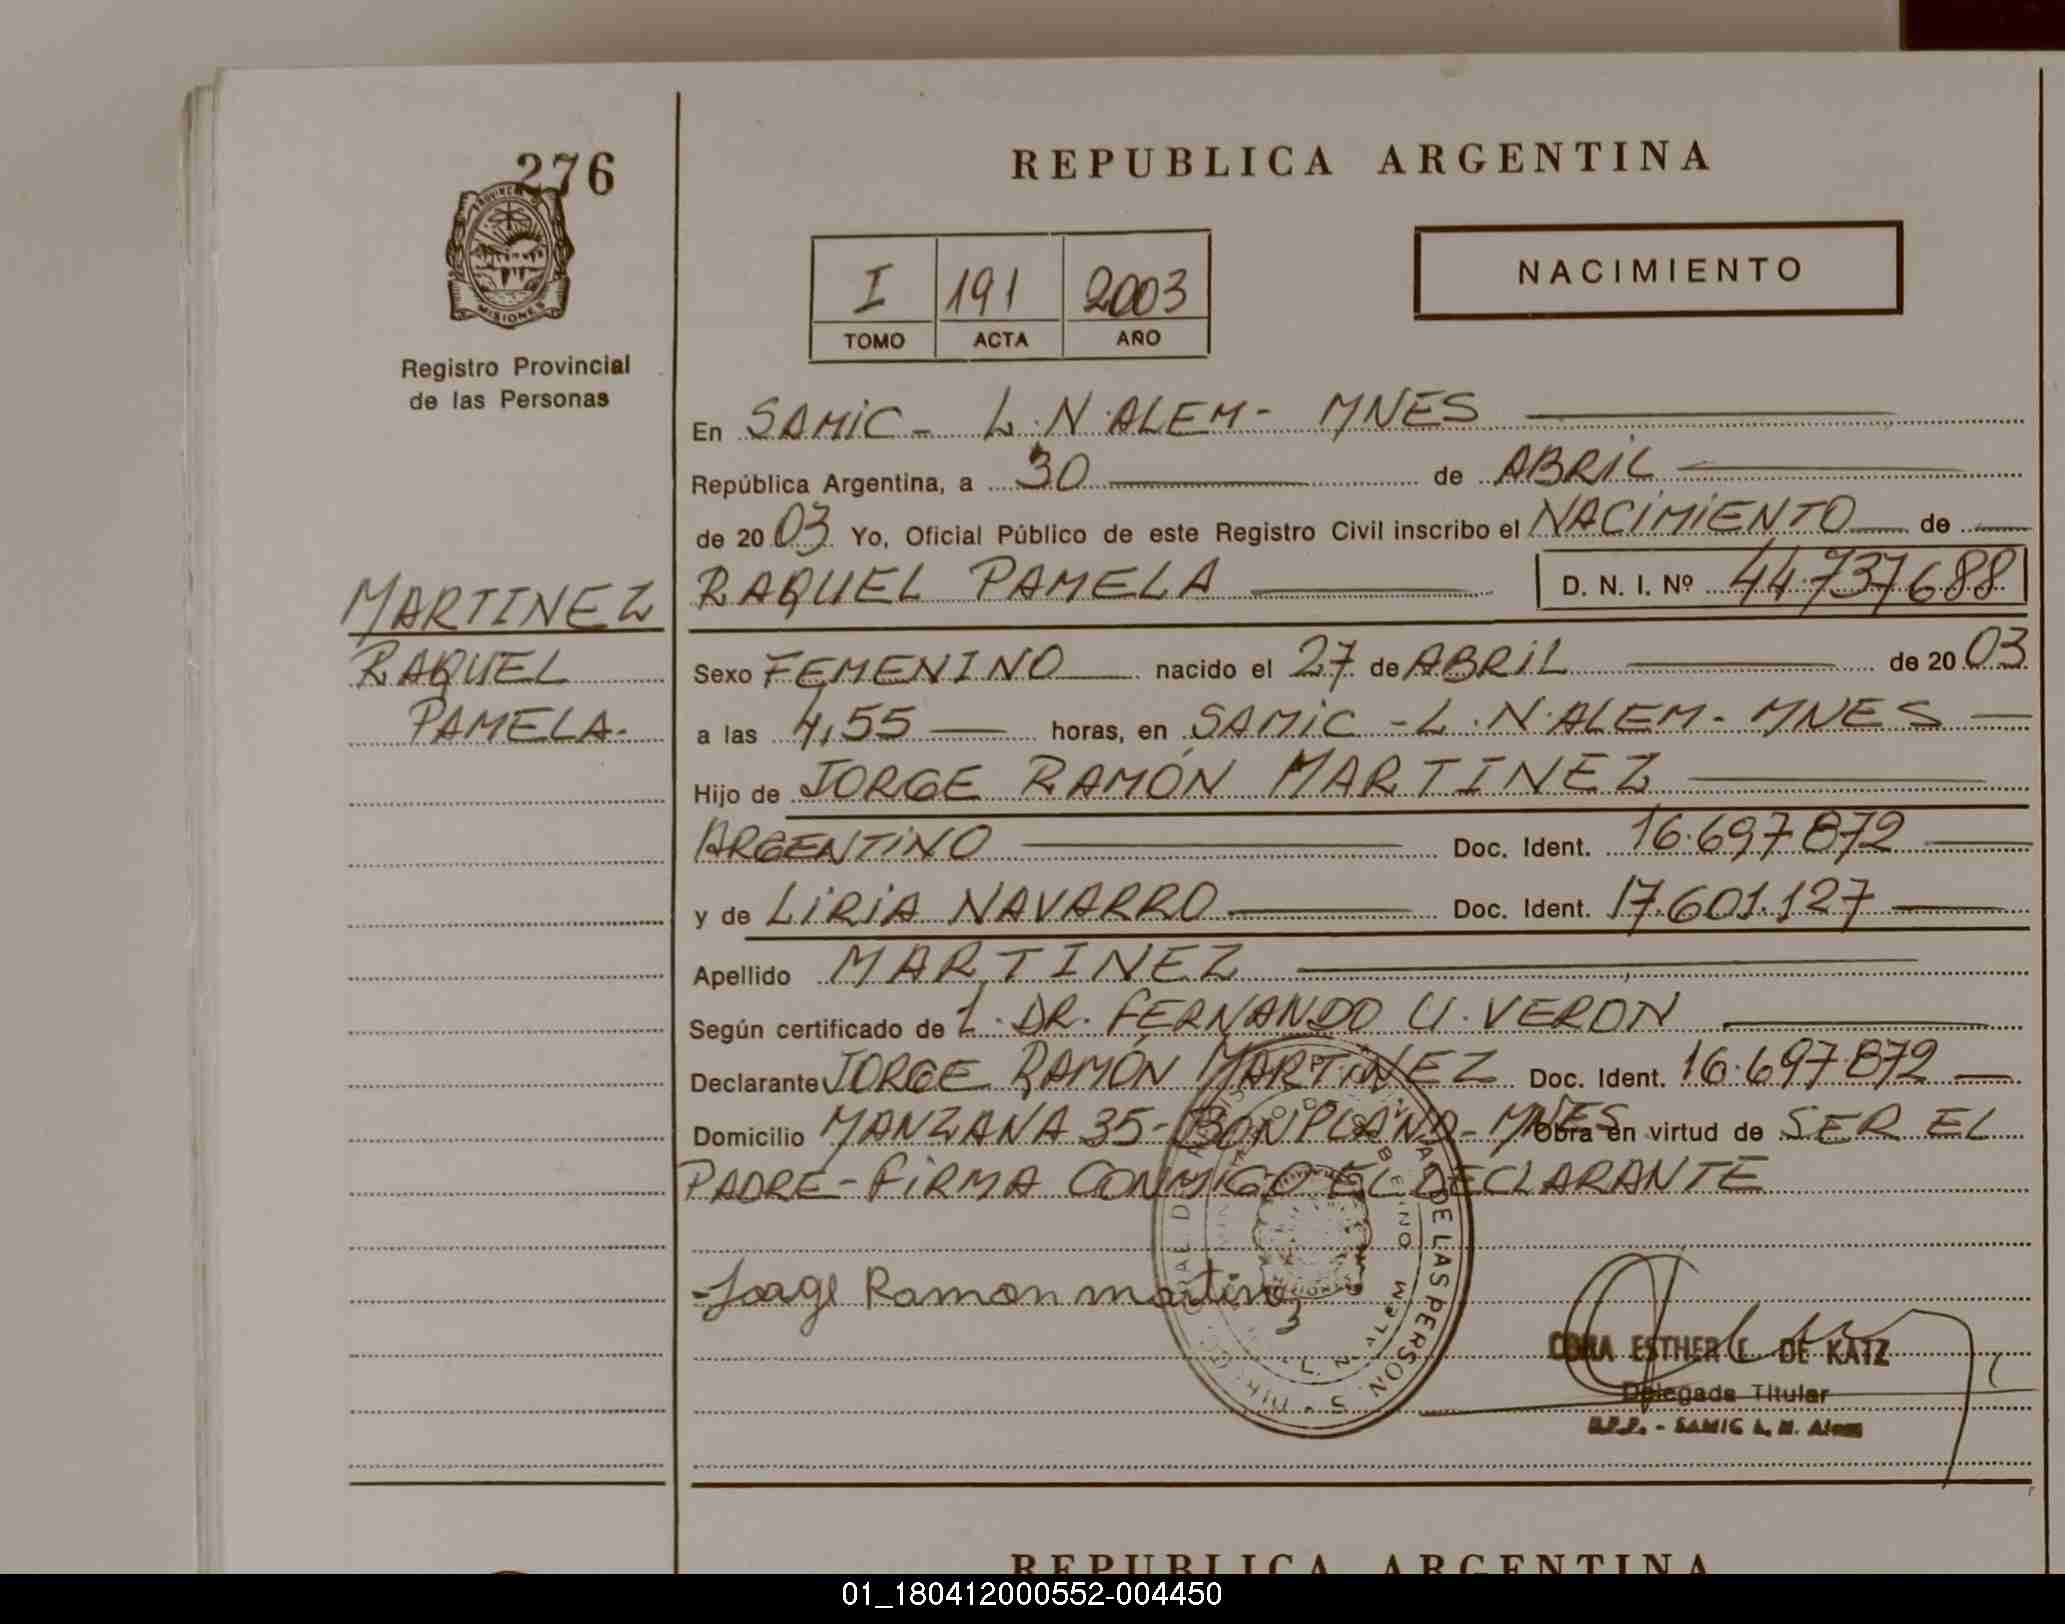 276
REPUBLICA ARGENTINA
PROVINCIA DE
MISIONES
Registro Provincial
de las Personas
I 191 2003
TOMO ACTA AÑO
NACIMIENTO
En SAMIC - L.N.ALEM - MNES
República Argentina, a 30 de ABRIL
de 2003 Yo, Oficial Público de este Registro Civil inscribo el NACIMIENTO de
MARTINEZ
RAQUEL
PAMELA.
RAQUEL PAMELA D. N. I. Nº 44.737.688
Sexo FEMENINO nacido el 27 de ABRIL de 2003
a las 4,55 horas, en SAMIC - L.N.ALEM - MNES
Hijo de JORGE RAMÓN MARTINEZ
ARGENTINO Doc. Ident. 16.697.872
y de LIRIA NAVARRO Doc. Ident. 17.601.127
Apellido MARTINEZ
Según certificado de DR. FERNANDO U. VERON
Declarante JORGE RAMÓN MARTINEZ Doc. Ident. 16.697.872
Domicilio MANZANA 35 - BONPLAND - MNES Obra en virtud de SER EL
PADRE - FIRMA CONMIGO EL DECLARANTE
DE LAS PERSONAS
L. N. ALEM
Jorge Ramon martinez
ESTHER E. DE KATZ
Delegada Titular
R.P.P. - SAMIC L. N. Alem
REPUBLICA ARGENTINA
01_180412000552-004450